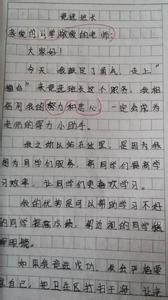 竞选班长
亲爱的同学敬爱的老师:
大家好!
今天,我鼓足了勇气,走上"
"来竞选班长这个职务,我相
信用我的努力和忠心,一定会成为
老师的得力小助手。
我之所以站在这里,是因为我
为同学们服务,帮同学们提高学
习效率,让同学们更喜欢学习。
我的优势是可以帮助学习不好
的同学提高成绩,帮
如果我竞选成功,我会严格要
自己,